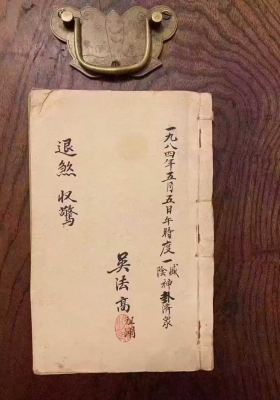 一九八四年五月五日午時度一
陰神卦濟眾
退煞收驚
吳法高